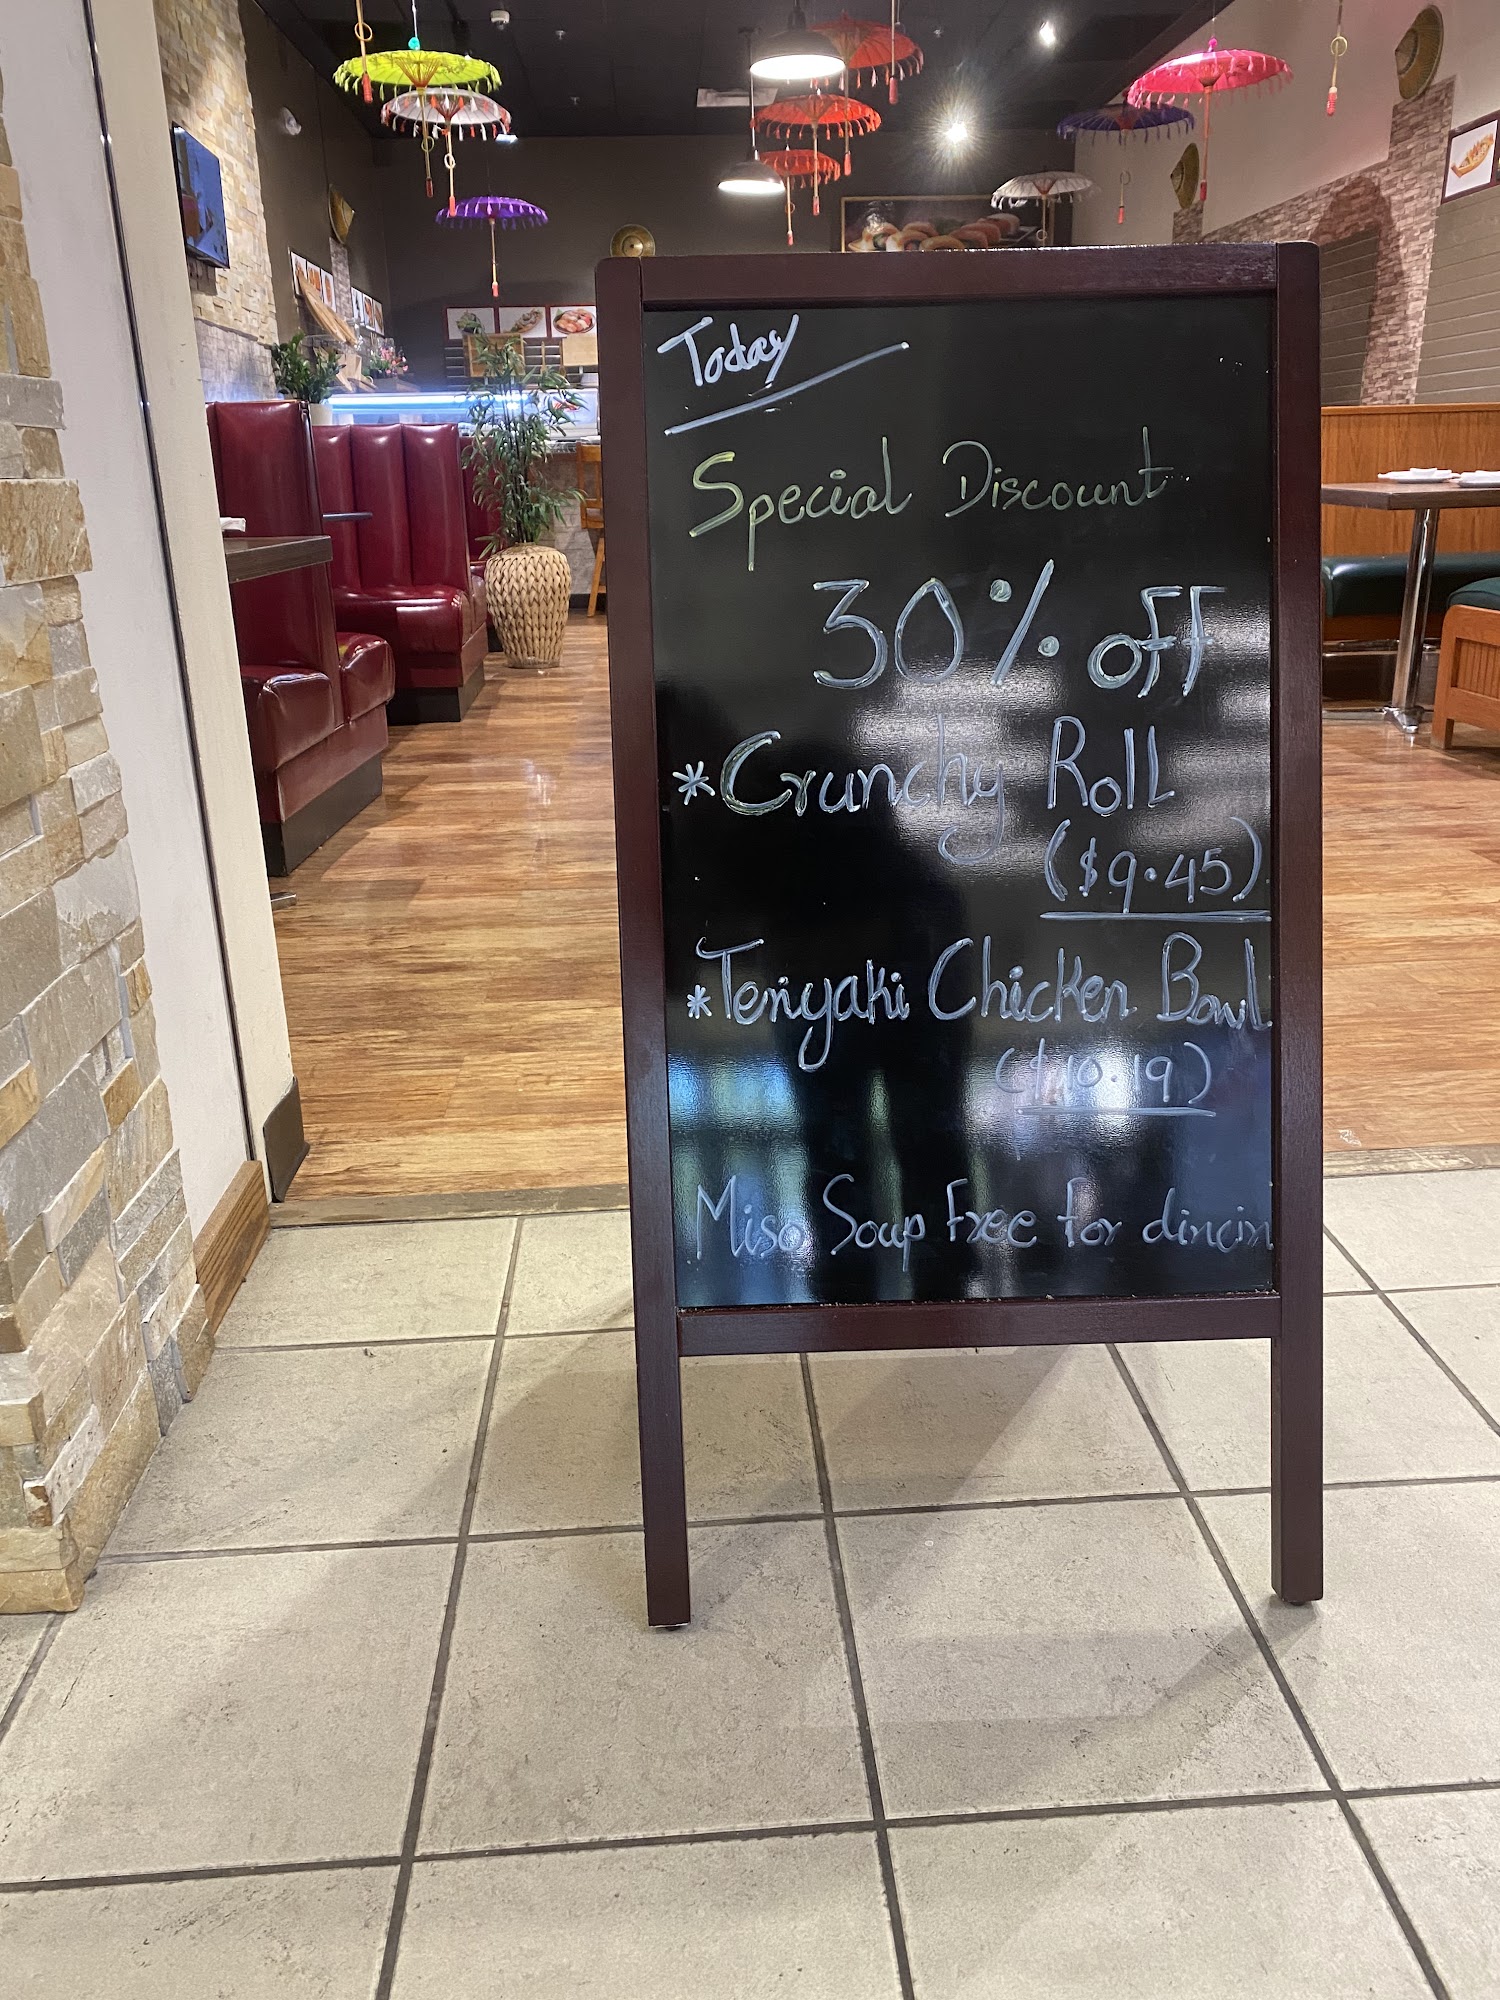 Today
Special Discount
30% off
*Crunchy Roll
($9.45)
*Teriyaki Chicken Bowl
($10.19)
Miso Soup Free for dincin